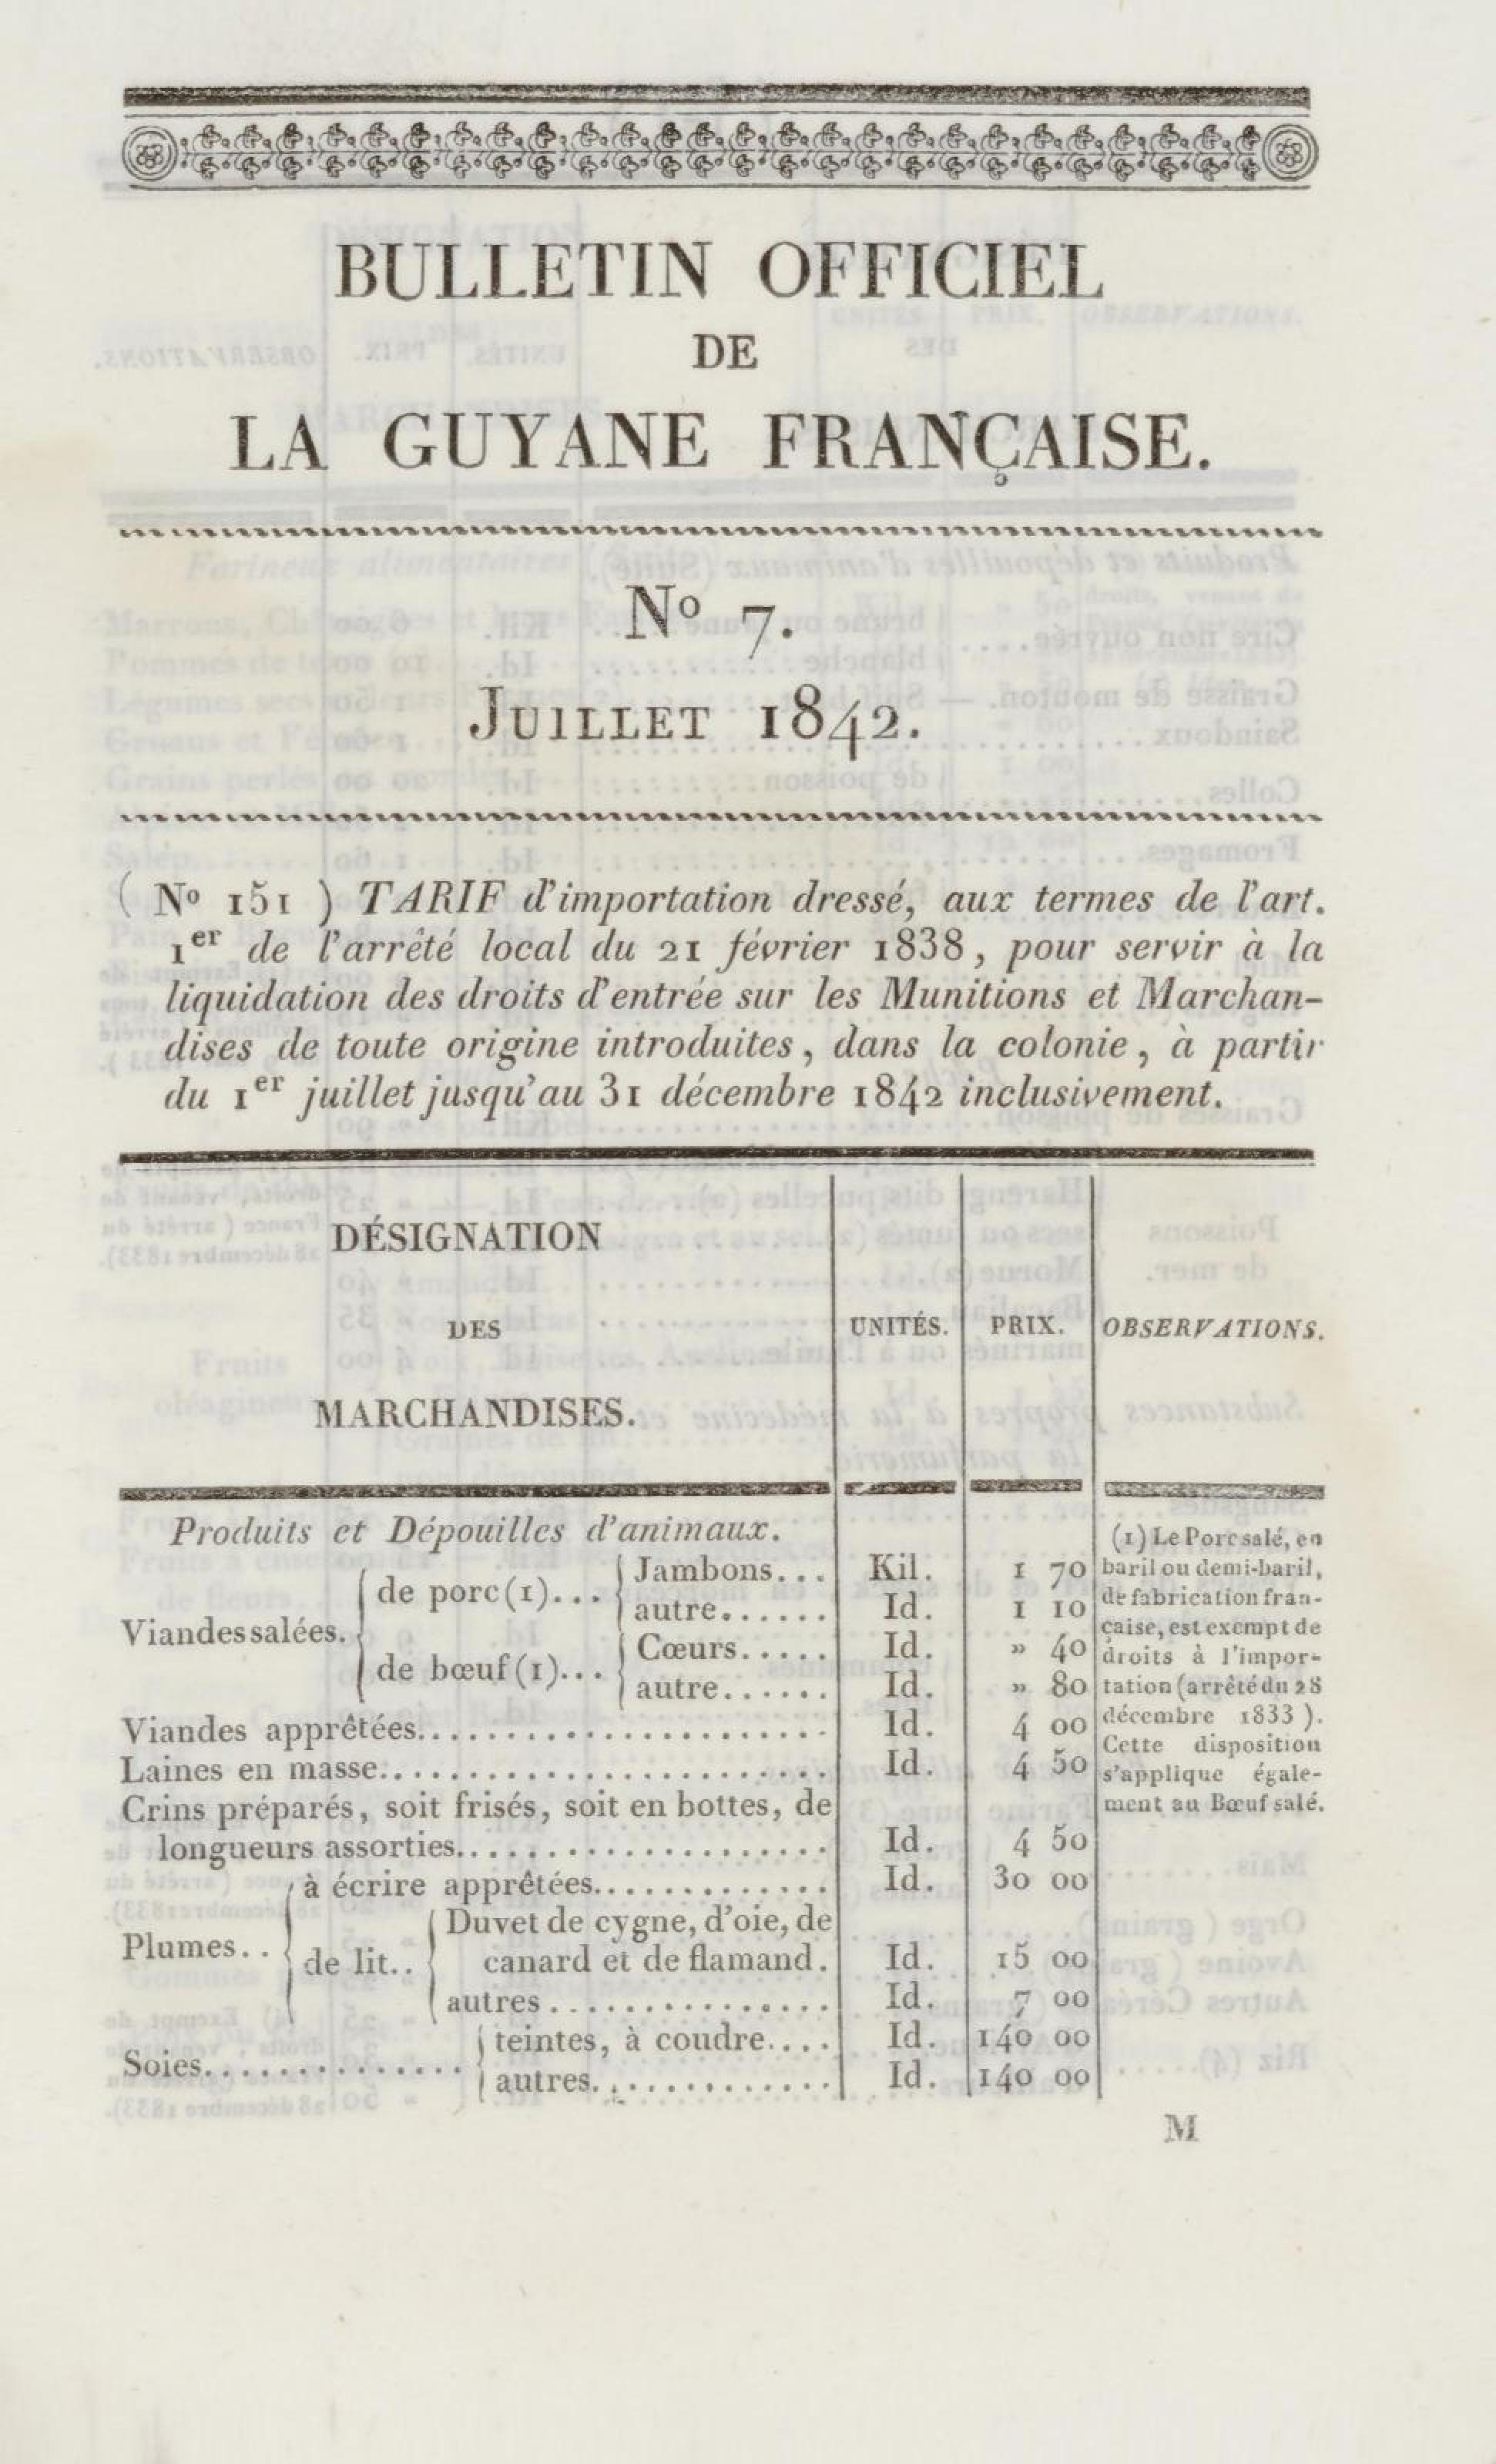 BULLETIN OFFICIEL
DE
LA GUYANE FRANÇAISE.
Nº 7.
JUILLET 1842.
( Nº 151 ) TARIF d'importation dressé, aux termes de l'art.
1er de l'arrêté local du 21 février 1838, pour servir à la
liquidation des droits d'entrée sur les Munitions et Marchan-
dises de toute origine introduites, dans la colonie, à partir
du 1er juillet jusqu'au 31 décembre 1842 inclusivement.
DÉSIGNATION
DES
MARCHANDISES.
UNITÉS.
PRIX.
OBSERVATIONS.
Produits et Dépouilles d'animaux.
Viandes salées.
de porc (1)... Jambons... Kil. 1 70
autre...... Id. 1 10
de bœuf (1)... Cœurs..... Id. » 40
autre...... Id. » 80
Viandes apprêtées...................... Id. 4 00
Laines en masse........................ Id. 4 50
Crins préparés, soit frisés, soit en bottes, de
longueurs assorties.................... Id. 4 50
Plumes..
à écrire apprêtées............. Id. 30 00
de lit.. Duvet de cygne, d'oie, de
canard et de flamand. Id. 15 00
autres............... Id. 7 00
Soies..............
teintes, à coudre.... Id. 140 00
autres............. Id. 140 00
(1) Le Porc salé, en
baril ou demi-baril,
de fabrication fran-
çaise, est exempt de
droits à l'impor-
tation (arrêté du 28
décembre 1833 ).
Cette disposition
s'applique égale-
ment au Bœuf salé.
M